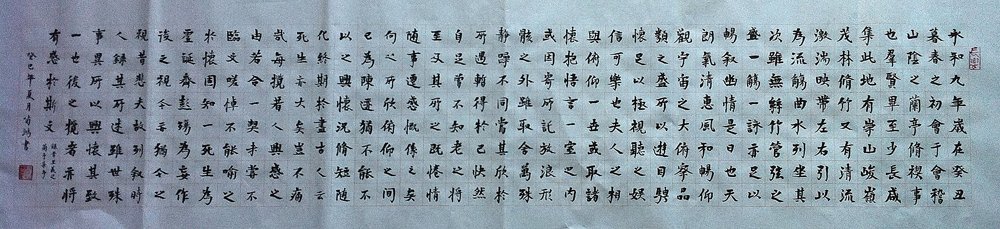 永和九年歲在癸丑
暮春之初會於會稽
山陰之蘭亭脩禊事
也群賢畢至少長咸
集此地有崇山峻嶺
茂林脩竹又有清流
激湍映帶左右引以
為流觴曲水列坐其
次雖無絲竹管弦之
盛一觴一詠亦足以
暢敘幽情是日也天
朗氣清惠風和暢仰
觀宇宙之大俯察品
類之盛所以遊目騁
懷足以極視聽之娛
信可樂也夫人之相
與俯仰一世或取諸
懷抱悟言一室之內
或因寄所託放浪形
骸之外雖取舍萬殊
靜躁不同當其欣於
所遇暫得於己快然
自足曾不知老之將
至及其所之既惓情
隨事遷感慨係之矣
向之所欣俛仰之間
以為陳迹猶不能不
以之興懷況脩短隨
化終期於盡古人云
死生亦大矣豈不痛
哉每攬昔人興感之
由若合一契未嘗不
臨文嗟悼不能喻之
於懷固知一死生為
虛誕齊彭殤為妄作
後之視今亦猶今之
視昔悲夫故列敘時
人錄其所述雖世殊
事異所以興懷其致
一也後之攬者亦將
有感於斯文
癸巳年夏月書